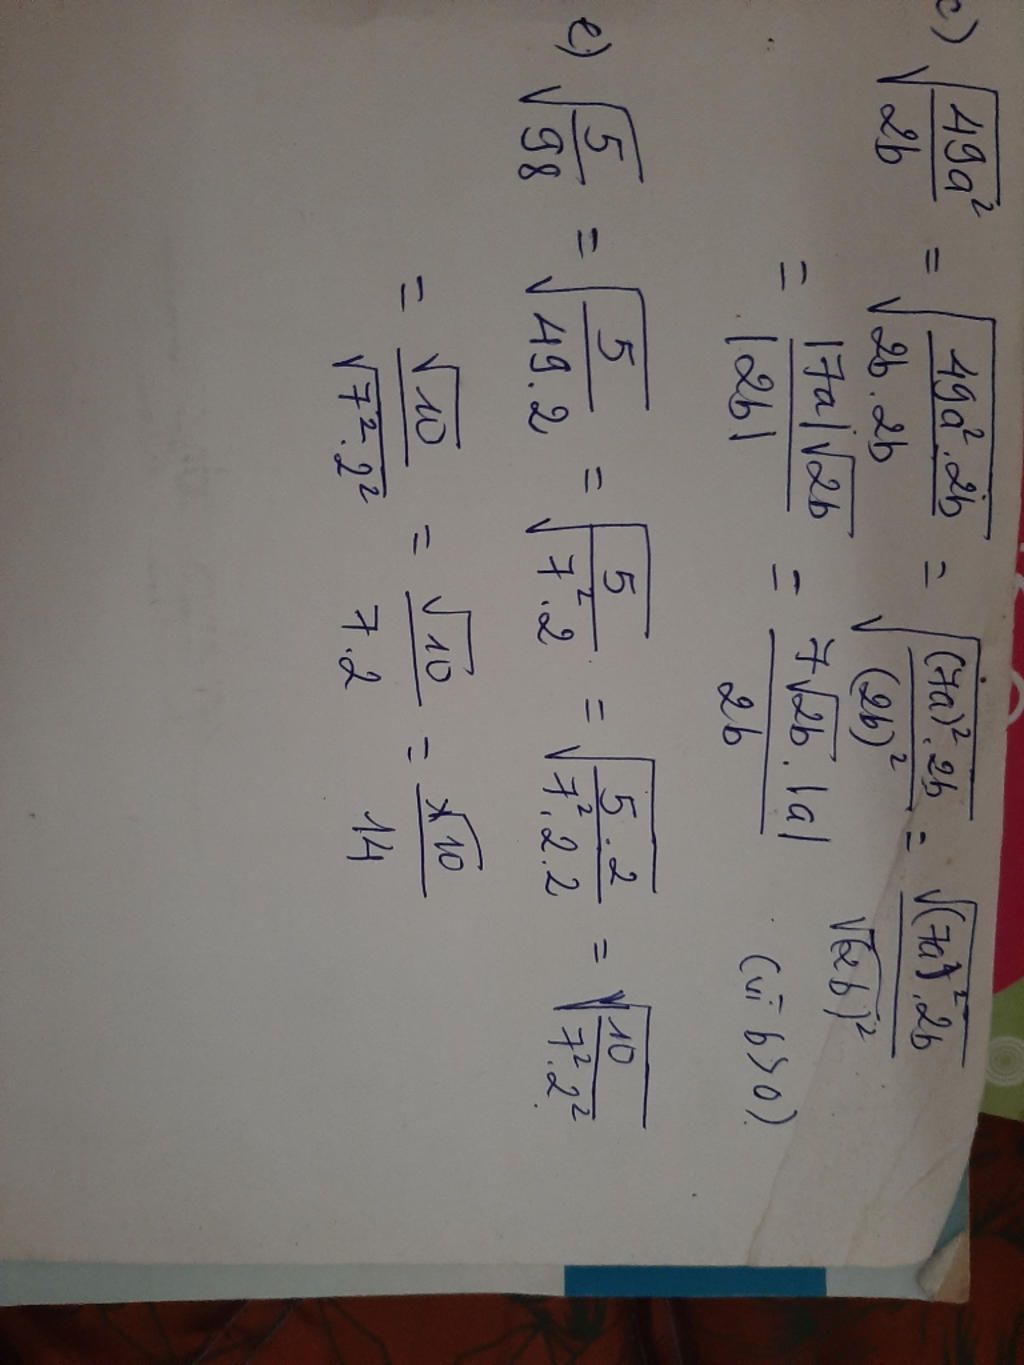 c) √(49a²/2b) = √(49a².2b/2b.2b) = √((7a)².2b/(2b)²) = √((7a)².2b)/√(2b)²
= |7a|√2b/|2b| = 7√2b.|a|/2b (vì b>0)
e) √(5/98) = √(5/49.2) = √(5/7².2) = √(5.2/7².2.2) = √(10/7².2²)
= √10/√(7².2²) = √10/7.2 = √10/14